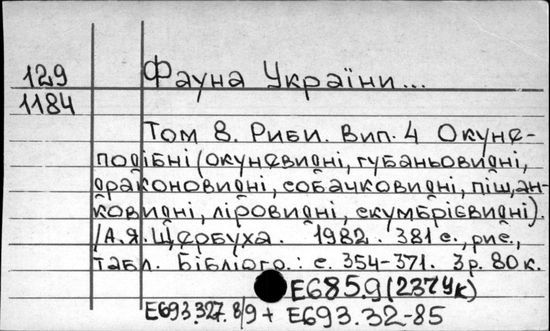 129
1184
Фауна України...
Том 8. Риби. Вип. 4 Окуне-
подібні (окуневидні, губаньовидні,
драконовидні, собачковидні, піщан-
ковидні, ліровидні, скумбрієвидні).
/А.Я. Щербуха. 1982. 381 с., рис.,
табл. Бібліогр.: с. 354-371. 3р. 80к.
Е685.9(237Ук)
Е693.327.8/9 + Е693.32-85